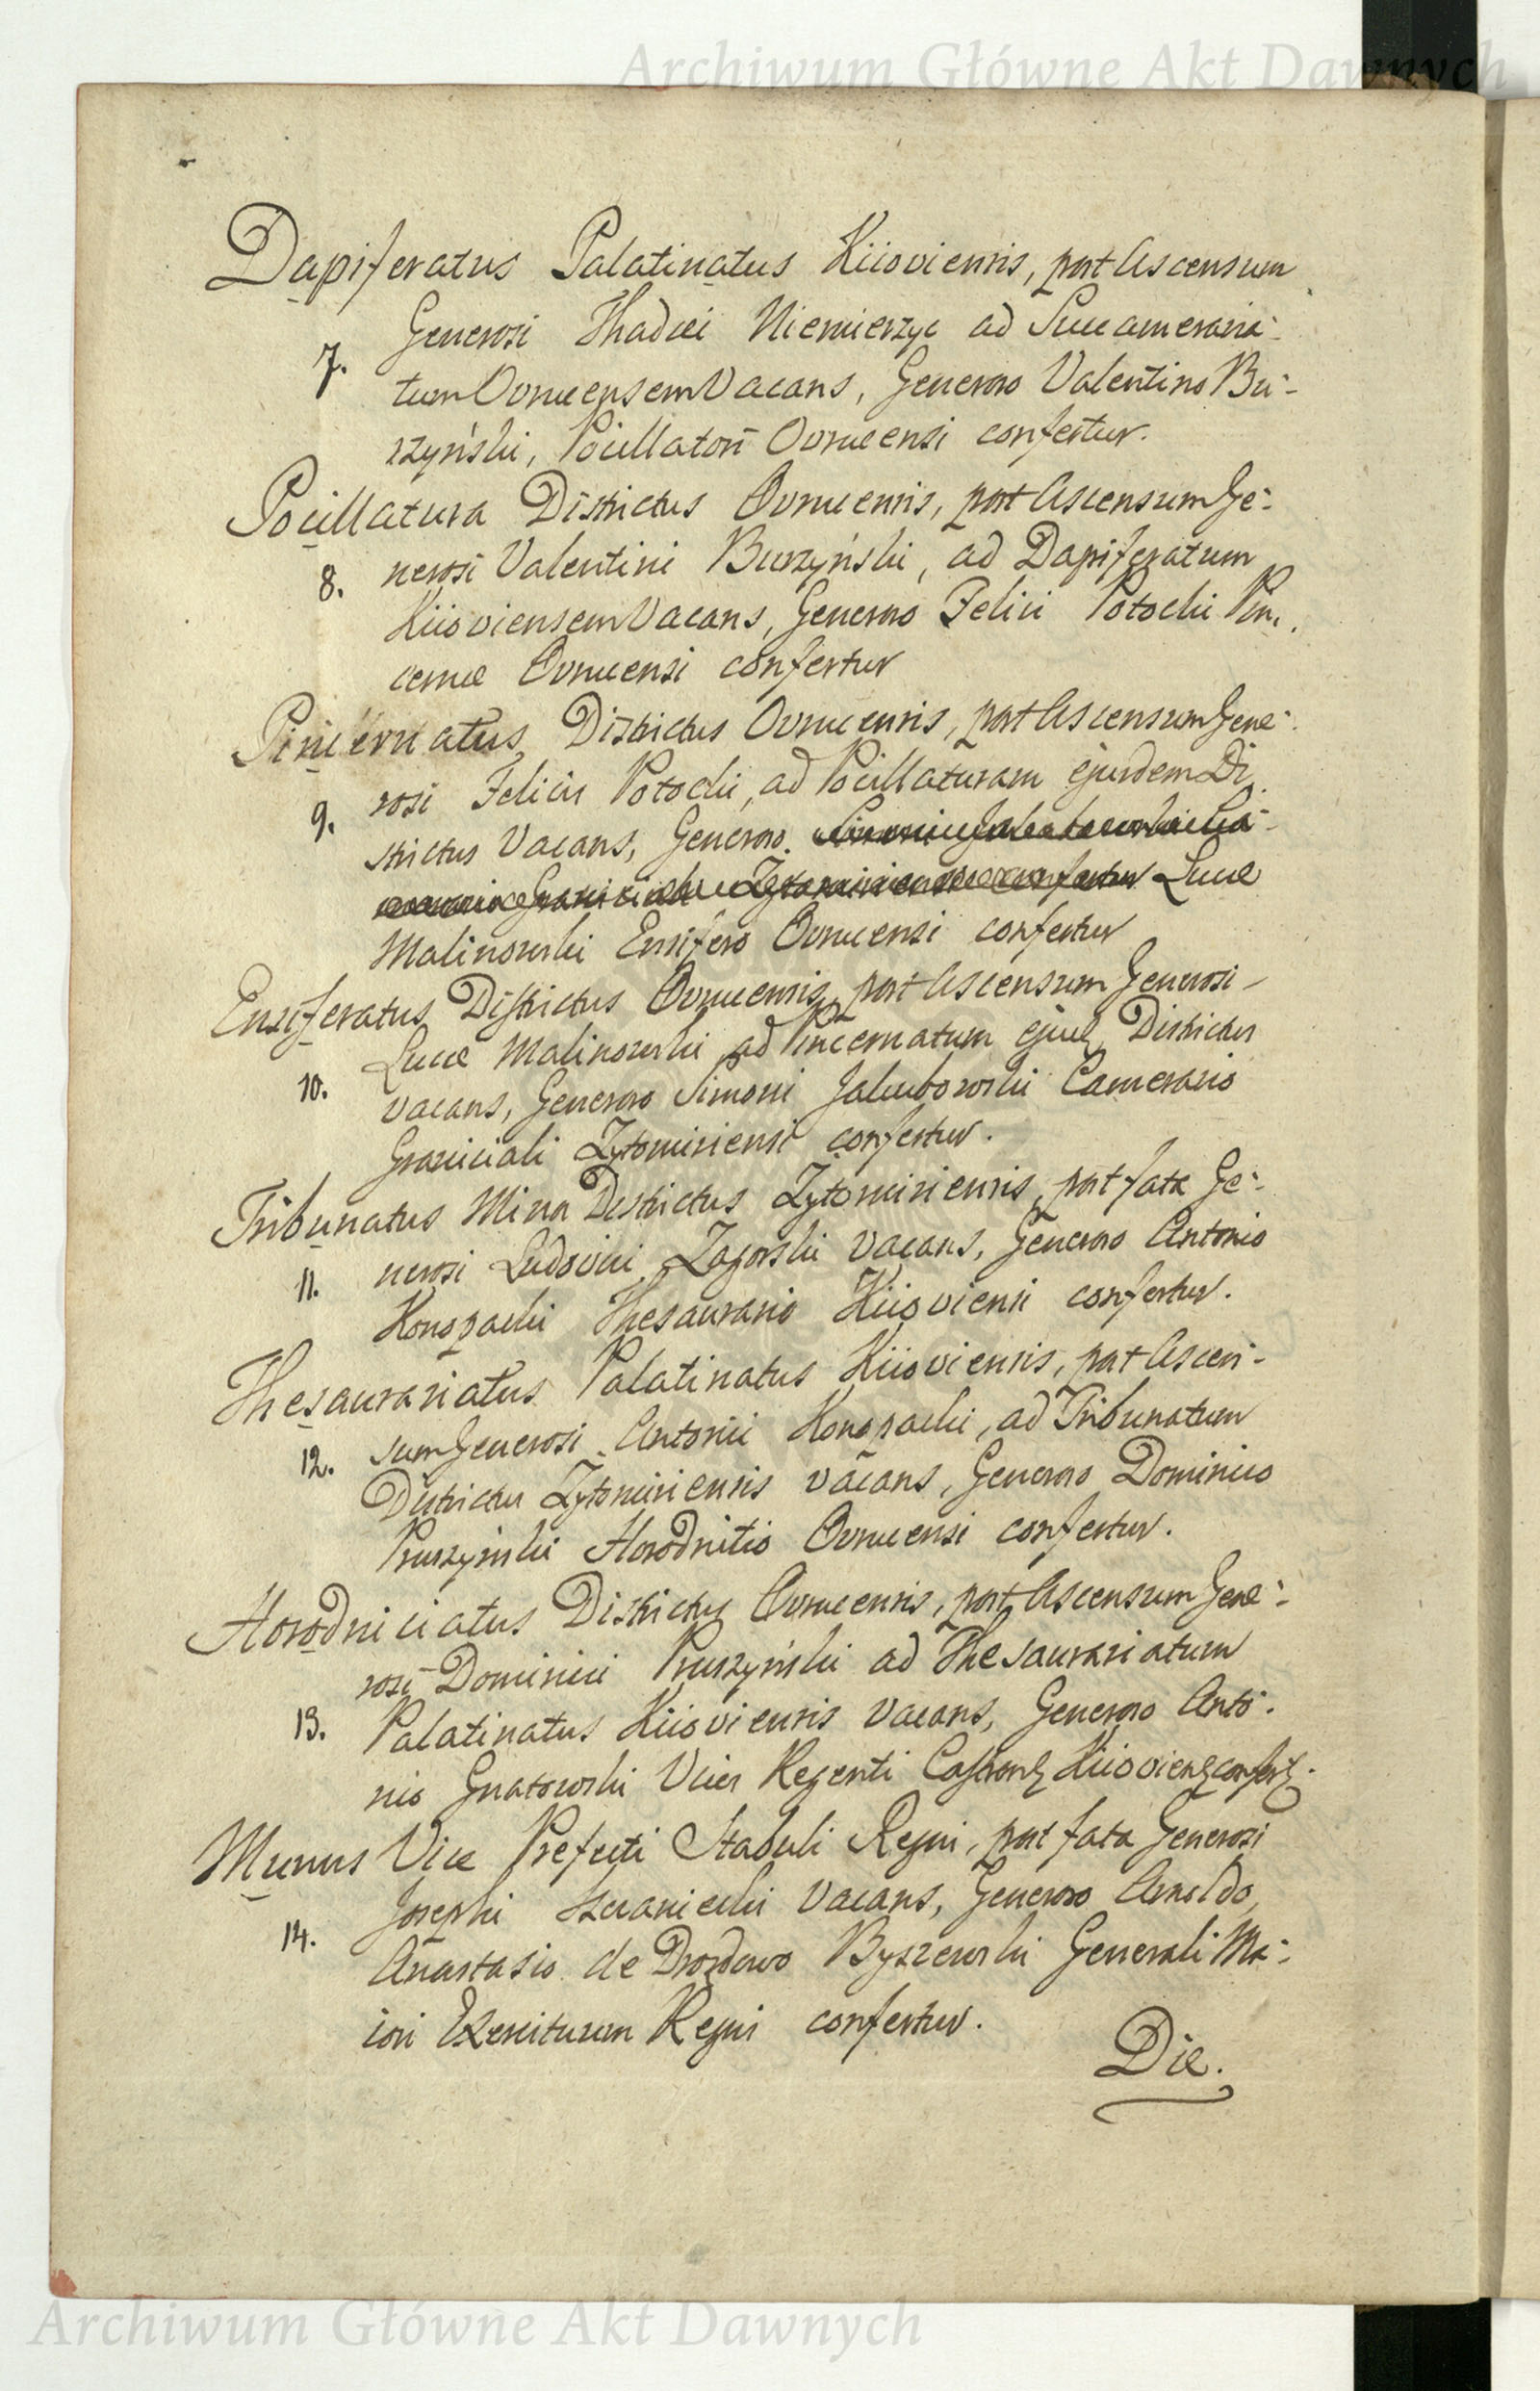 Archiwum Główne Akt Dawnych
Dapiferatus Palatinatus Kiioviensis, post Ascensum
Generosi Thadei Niemierzyc ad Succameraria-
7.
tum Ovrucensem Vacans, Generoso Valentino Bu-
rzyński, Pocillatori Ovrucensi confertur.
Pocillatura Districtus Ovrucensis, post Ascensum Ge-
8. nerosi Valentini Burzyński, ad Dapiferatum
Kiioviensem Vacans, Generoso Felici Potocki Pin.
cernæ Ovrucensi confertur
Pincernatus Districtus Ovrucensis, post Ascensum Gene-
9. rosi Felicis Potocki, ad Pocillaturam ejusdem Di.
strictus Vacans, Generoso. Simoni Jakubowski Ca-
Graniciali Zytomiriensi confertur Lucæ
Malinowski Ensifero Ovrucensi confertur
Ensiferatus Districtus Ovrucensis, post Ascensum Generosi
10. Lucæ Malinowski ad Pincernatum ejusd Districtus
vacans, Generoso Simoni Jakubowski Camerario
Graniciali Zytomiriensi confertur.
Tribunatus Minor Districtus Zytomiriensis, post fata Ge-
11. nerosi Ludovici Zagorski vacans, Generoso Antonio
Konopacki Thesaurario Kiioviensi confertur.
Thesaurariatus Palatinatus Kiioviensis, post Ascen-
12. sum Generosi Antonii Konopacki, ad Tribunatum
Districtus Zytomiriensis vacans, Generoso Dominico
Pruszyński Horodnitio Ovrucensi confertur.
Horodniciatus Districtus Ovrucensis, post Ascensum Gene-
rosi Dominici Pruszyński ad Thesaurariatum
13. Palatinatus Kiioviensis vacans, Generoso Anto-
nio Gnatowski Vices Regenti Castren Kiiovien confert.
Munus Vice Prefecti Stabuli Regni, post fata Generosi
14. Josephi vacans, Generoso Arnoldo,
Anastasio de Drozdowo Byszewski Generali Ma-
iori Exercituum Regni confertur.
Die.
Archiwum Główne Akt Dawnych